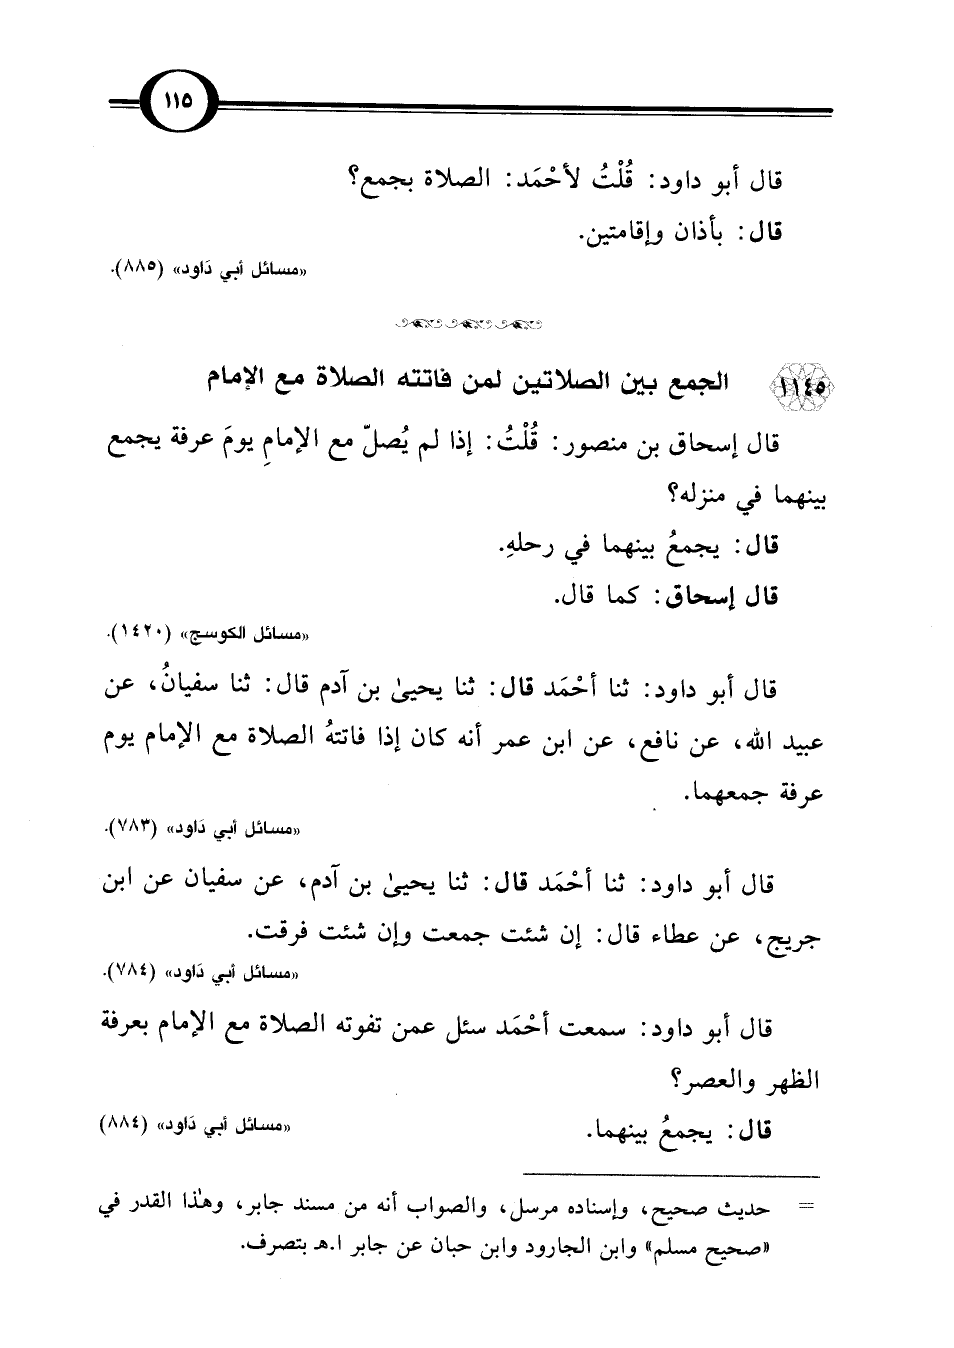 ١١٥
قال أبو داود: قُلْتُ لأحْمَد: الصلاة بجمع؟
قال: بأذان وإقامتين.
«مسائل أبي دَاود» (٨٨٥).
١١٤٥ الجمع بين الصلاتين لمن فاتته الصلاة مع الإمام
قال إسحاق بن منصور: قُلْتُ: إذا لم يُصلّ مع الإمامِ يومَ عرفة يجمع
بينهما في منزله؟
قال: يجمعُ بينهما في رحلهِ.
قال إسحاق: كما قال.
«مسائل الكوسج» (١٤٢٠).
قال أبو داود: ثنا أحْمَد قال: ثنا يحيىٰ بن آدم قال: ثنا سفيانُ، عن
عبيد الله، عن نافع، عن ابن عمر أنه كان إذا فاتتهُ الصلاة مع الإمام يوم
عرفة جمعهما.
«مسائل أبي دَاود» (٧٨٣).
قال أبو داود: ثنا أحْمَد قال: ثنا يحيىٰ بن آدم، عن سفيان عن ابن
جريج، عن عطاء قال: إن شئت جمعت وإن شئت فرقت.
«مسائل أبي دَاود» (٧٨٤).
قال أبو داود: سمعت أحْمَد سئل عمن تفوته الصلاة مع الإمام بعرفة
الظهر والعصر؟
قال: يجمعُ بينهما. «مسائل أبي دَاود» (٨٨٤)
= حديث صحيح، وإسناده مرسل، والصواب أنه من مسند جابر، وهٰذا القدر في
«صحيح مسلم» وابن الجارود وابن حبان عن جابر ا.هـ بتصرف.